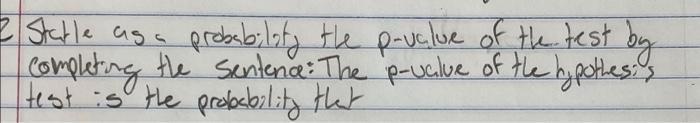 2 Statle as a probability the p-value of the test by
completing the sentence: The p-value of the hypothesis
test is the probability that